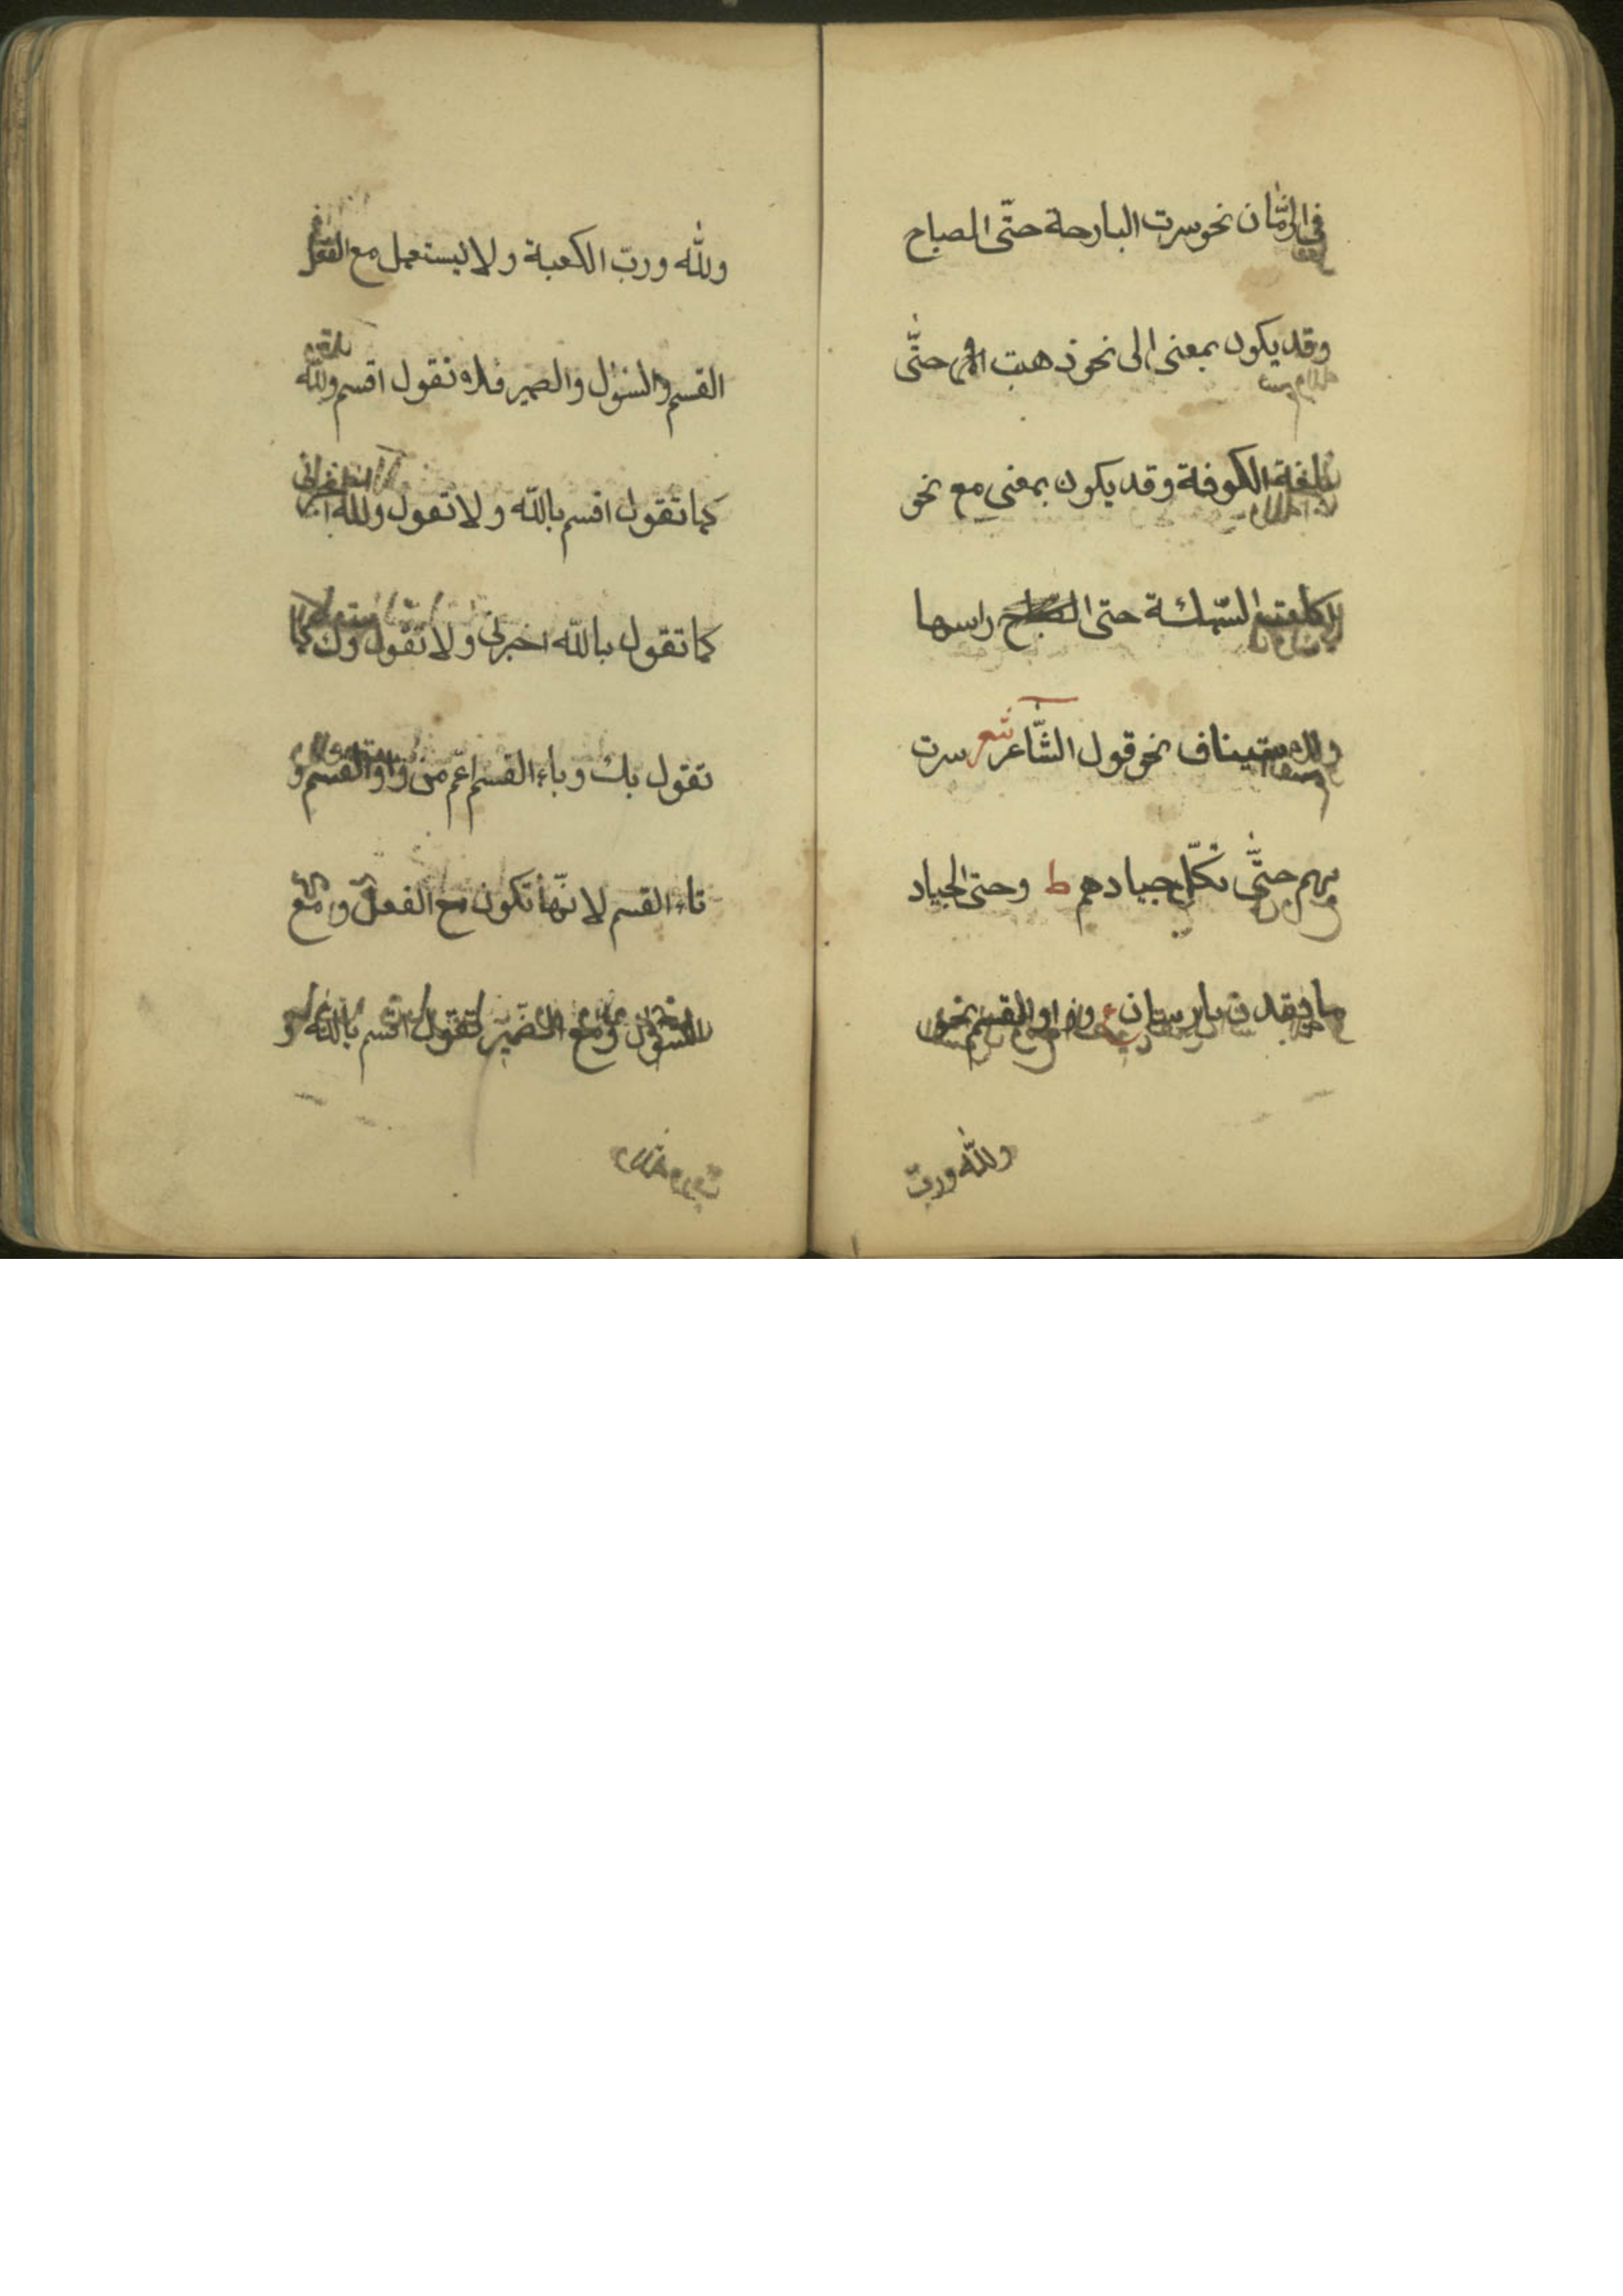 في الزمّان نحو سرت البارحة حتّى المصباح
وقد يكون بمعنى الى نحو ذهبت حتّى
الكوفة وقد يكون بمعنى مع نحو
السّمكة حتى راسها
ولاستيناف نحو قول الشّاعر شعر سرت
بهم حتّى تكلّ جيادهم ط وحتى الجياد
ما يقدن بارسان وواو القسم نحو
ولله وربّ
ولله وربّ الكعبة ولا ليستعمل مع الفعل
القسم والسؤل والضمير فلا تقول اقسم ولله
كما تقول اقسم بالله ولا تقول ولله
كما تقول بالله اخبرنى ولا تقول وك كما
تقول بك وباء القسم اعم من واو القسم و
تاء القسم لانّها تكون مع الفعل و مع
السؤل ومع الضمير تقول اقسم بالله و